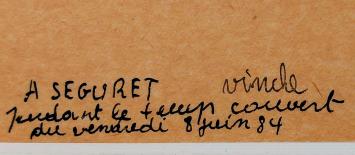 A SEGURET vinche
pendant le temp couvert
du vendredi 8 juin 84